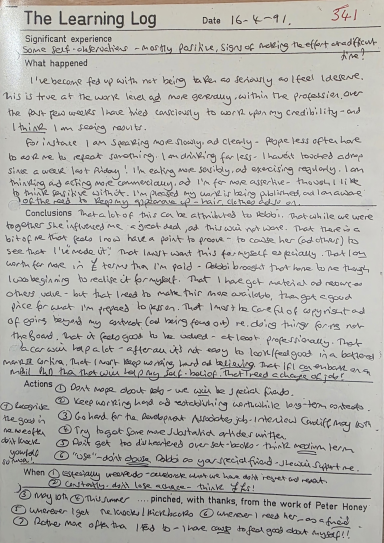 The Learning Log Date 16-4-91. 341
Significant experience
Some self-observations - mostly positive, signs of making the effort at a difficult time!
What happened
I've become fed up with not being taken as seriously as I feel I deserve.
This is true at the work level and more generally, within the profession. Over
the past few weeks I have tried consciously to work upon my credibility - and
I think I am seeing results.
For instance I am speaking more slowly, and clearly - People less often have
to ask me to repeat something. I am drinking far less - I haven't touched a drop
since a week last Friday! I'm eating more sensibly, and exercising regularly. I am
thinking and acting more commercially, and I'm far more assertive - though I like
to think positive with it. I'm pleased my work is being published, and I am aware
of the need to keep my appearance up - hair, clothes and so on.
Conclusions That a lot of this can be attributed to Robbi. That while we were
together she influenced me a great deal, and this will not wane. That there is a
bit of me that feels I now have a point to prove - to cause her (and others) to
see that I've made it. That I must want this for myself especially. That I am
worth far more in £ terms than I'm paid - Robbi brought that home to me though
I was beginning to realise it for myself. That I have got material and resources
others value - but that I need to make this more available, than got a good
price for what I'm prepared to person. That I must be careful of copyright and
of going beyond my contract (and being found out) re. doing things for me not
the Board. That it feels good to be valued - at least professionally. That
a car will help a lot - after all it's not easy to look/feel good in a
That I must keep working hard and believing that if I can embark on a
MPhil/PhD that this will help my self-belief. That I need a change of job!
Actions ① Don't mope about Robbi - we will be special friends.
② Keep working hard and establishing worthwhile long-term contacts.
③ Go hard for the Development Associates job - Interview Cardiff May 10th
④ Try to get some more substantial articles written.
⑤ Don't get too disheartened over set-backs - think medium term
⑥ "Use" - don't abuse Robbi as your special friend - she will support me.
⑦ Recognise
the good in
me more often
don't knock
yourself
so much!
When ① especially weekends - celebrate what we have don't regret and resent.
② Constantly - don't lose a chance - think £'s!
③ May 10th ④ This summer .... pinched, with thanks, from the work of Peter Honey
⑤ Wherever I get the knocks / knockbacks ⑥ Whenever I need her - as a friend
⑦ Rather more often than I tend to - I have cause to feel good about myself!!